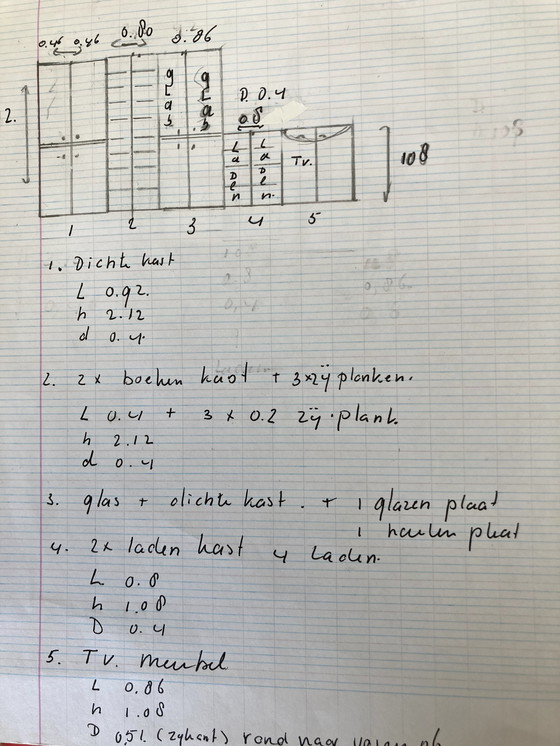 0.46 0.46 0.80 0.86
2.
glab
glab
D 0.4
0.8
Laden
Laden
Tv.
108
1 2 3 4 5
1. Dichte kast
L 0.92.
h 2.12
d 0.4.
2. 2x boeken kast + 3x zÿ planken.
L 0.4 + 3 x 0.2 zÿ.plank.
h 2.12
d 0.4
3. glas + dichte kast. + 1 glazen plaat
1 houten plaat
4. 2x laden kast 4 Laden.
L 0.8
h 1.08
D 0.4
5. Tv. meubel
L 0.86
h 1.08
D 0,51. (zykant) rond naar